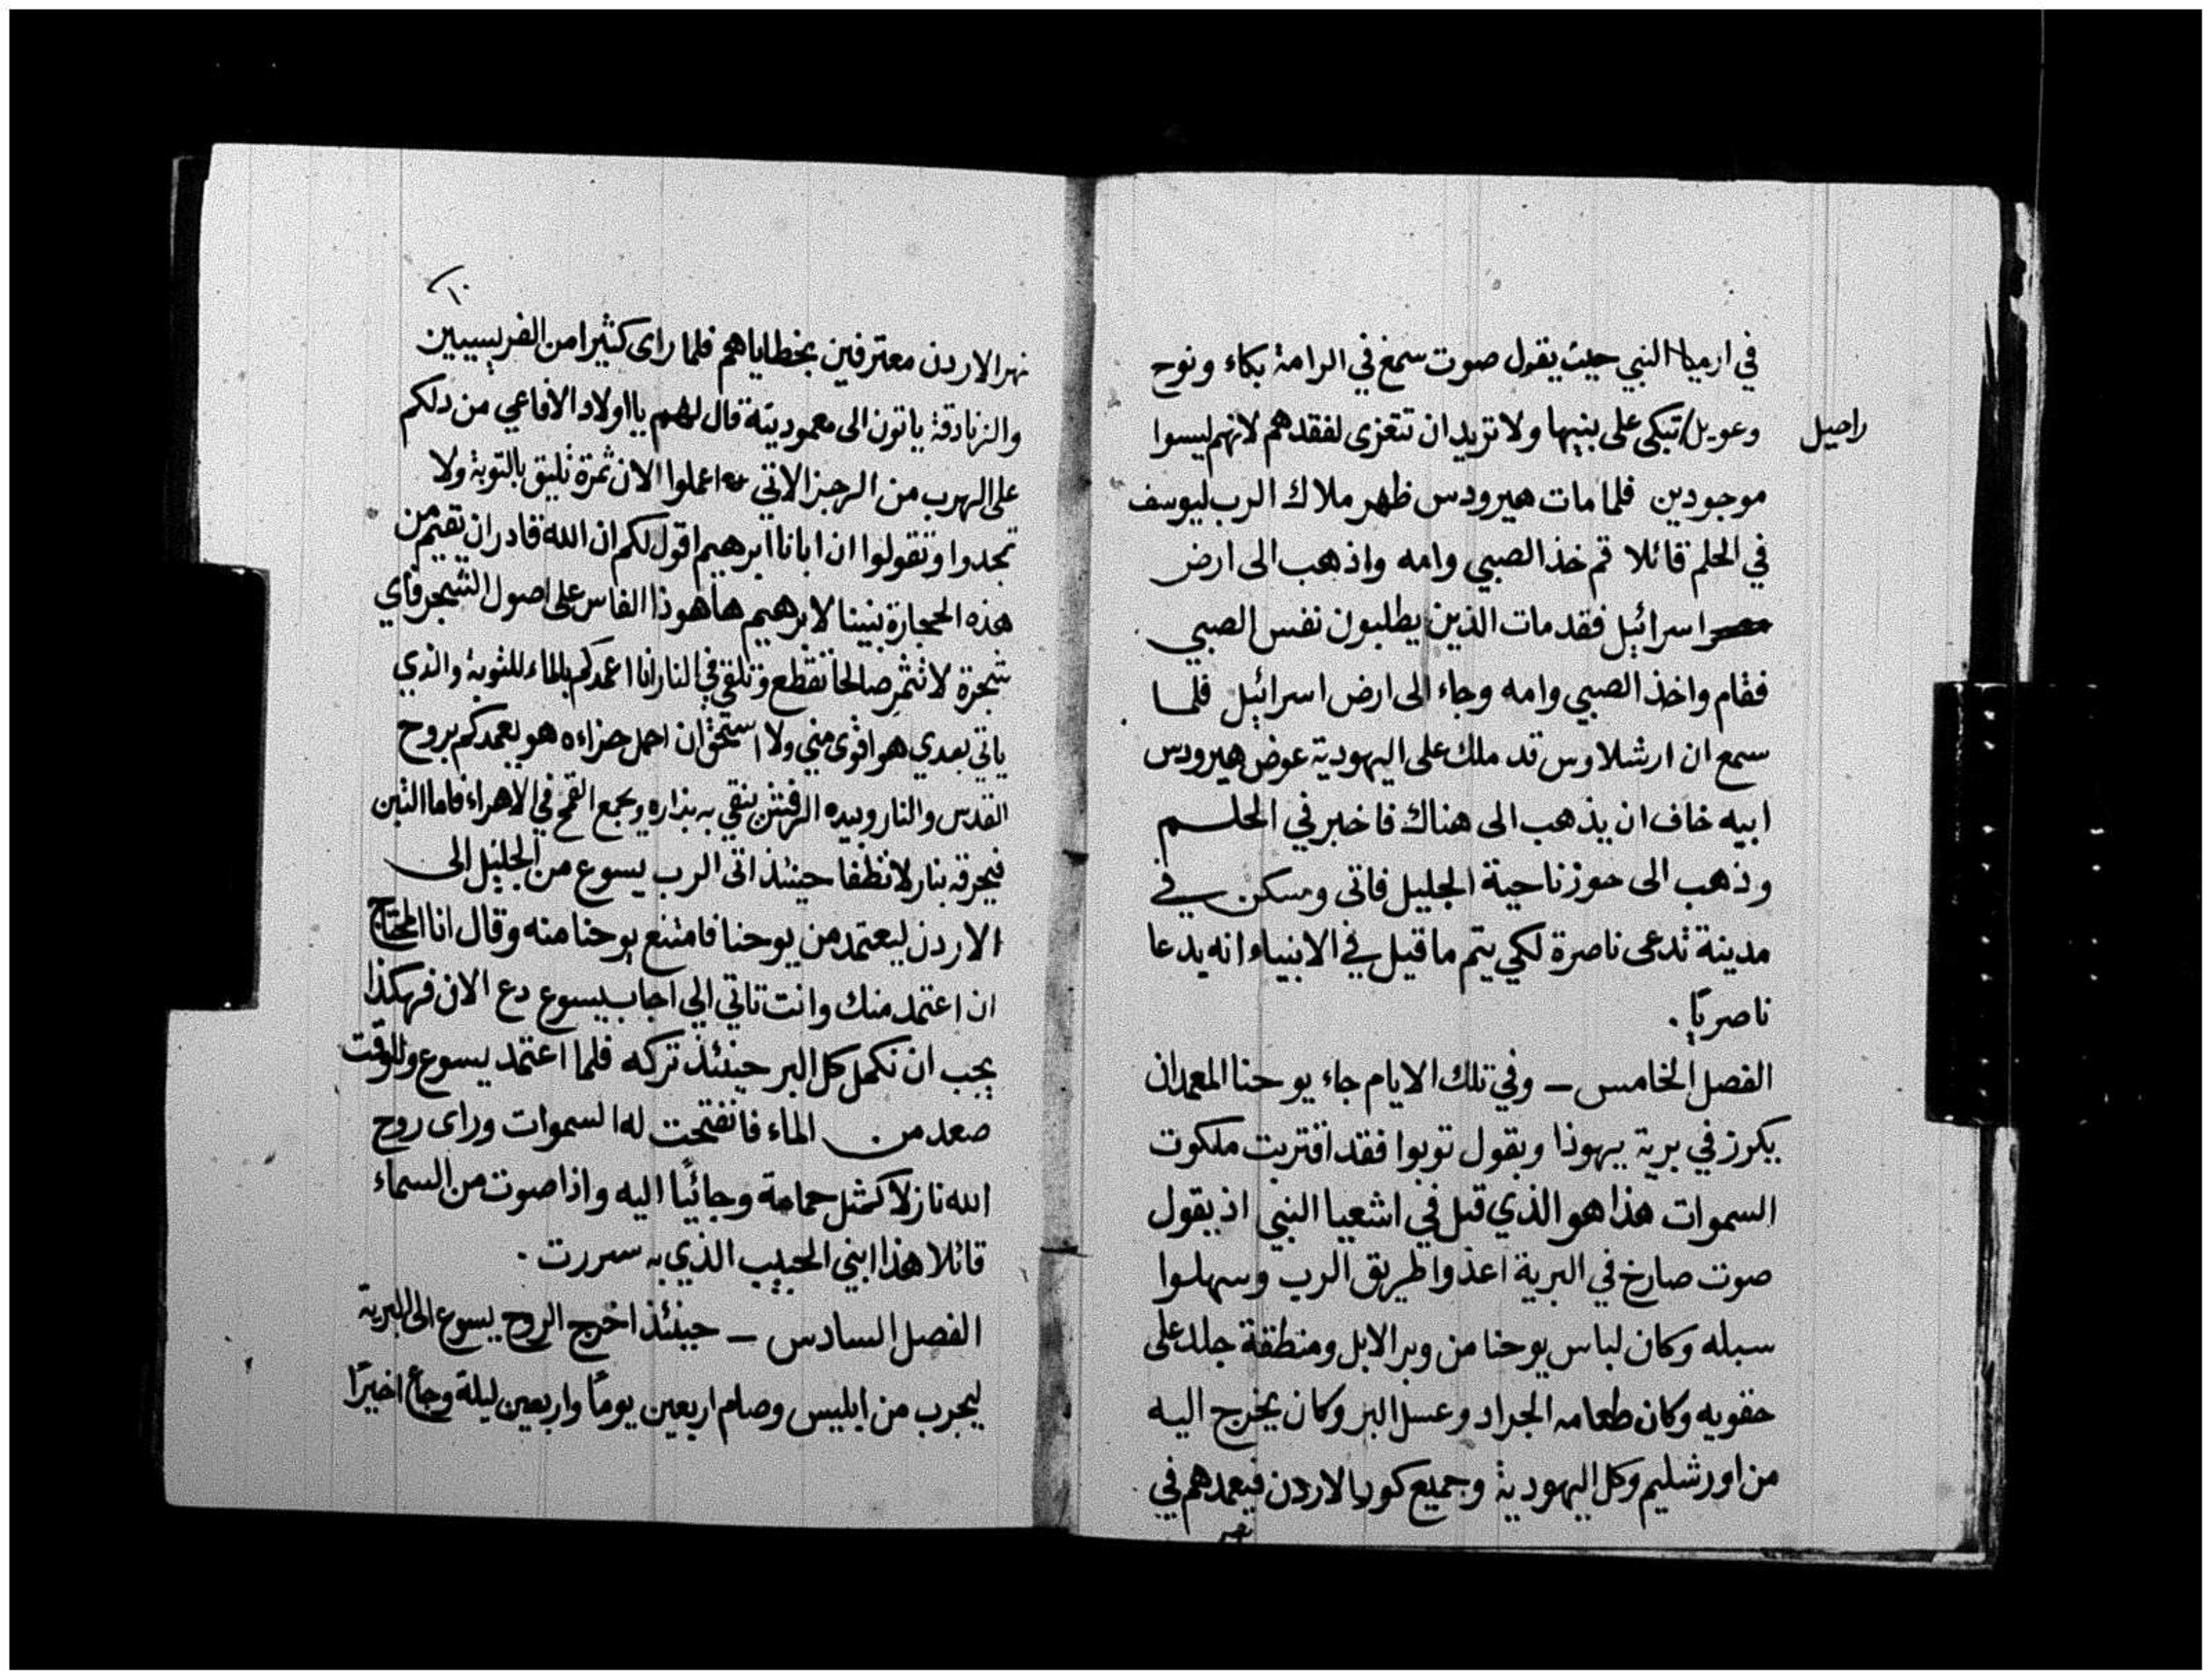 في ارميا النبي حيث يقول صوت سمع في الرامة بكاء ونوح
وعويل تبكي على بنيها ولا تريد ان تتعزى لفقدهم لانهم ليسوا
راحيل
موجودين فلما مات هيرودس ظهر ملاك الرب ليوسف
في الحلم قائلا قم خذ الصبي وامه واذهب الى ارض
اسرائيل فقد مات الذين يطلبون نفس الصبي
فقام واخذ الصبي وامه وجاء الى ارض اسرائيل فلما
سمع ان ارشلاوس قد ملك على اليهودية عوض هيرودس
ابيه خاف ان يذهب الى هناك فاخبر في الحلم
وذهب الى حوز ناحية الجليل فاتى وسكن في
مدينة تدعى ناصرة لكي يتم ما قيل في الانبياء انه يدعا
ناصريًا .
الفصل الخامس – وفي تلك الايام جاء يوحنا المعمدان
يكرز في برية يهوذا ويقول توبوا فقد اقتربت ملكوت
السموات هذا هو الذي قيل في اشعيا النبي اذ يقول
صوت صارخ في البرية اعدوا طريق الرب وسهلوا
سبله وكان لباس يوحنا من وبر الابل ومنطقة جلد على
حقويه وكان طعامه الجراد وعسل البر وكان يخرج اليه
من اورشليم وكل اليهودية وجميع كور الاردن فيعمدهم في
نهر
١٠
نهر الاردن معترفين بخطاياهم فلما راى كثيرا من الفريسيين
والزنادقة ياتون الى معموديته قال لهم يا اولاد الافاعي من دلكم
على الهرب من الرجز الاتي اعملوا الان ثمرة تليق بالتوبة ولا
تجدوا وتقولوا ان ابانا ابرهيم اقول لكم ان الله قادر ان تقيم من
هذه الحجارة بنينا لابرهيم ها هوذا الفاس على اصول الشجر فاي
شجرة لا تثمر صالحا تقطع وتلقى في النار انا اعمدكم بالماء للتوبة والذي
ياتي بعدي هو اقوى مني ولا استحق ان احمل حزاءه هو يعمدكم بروح
القدس والنار وبيده الرفش ينقي به بذاره ويجمع القمح في الاهراء فاما التبن
فيحرقه بنار لا تطفا حينئذ اتى الرب يسوع من الجليل الى
الاردن ليعتمد من يوحنا فامتنع يوحنا منه وقال انا المحتاج
ان اعتمد منك وانت تاتي الي اجاب يسوع دع الان فهكذا
يجب ان نكمل كل البر حينئذ تركه فلما اعتمد يسوع وللوقت
صعد من الماء فانفتحت له السموات وراى روح
الله نازلا كمثل حمامة وجائيًا اليه واذا صوت من السماء
قائلا هذا ابني الحبيب الذي به سررت .
الفصل السادس – حينئذ اخرج الروح يسوع الى البرية
ليجرب من ابليس وصام اربعين يومًا واربعين ليلة وجاع اخيرًا